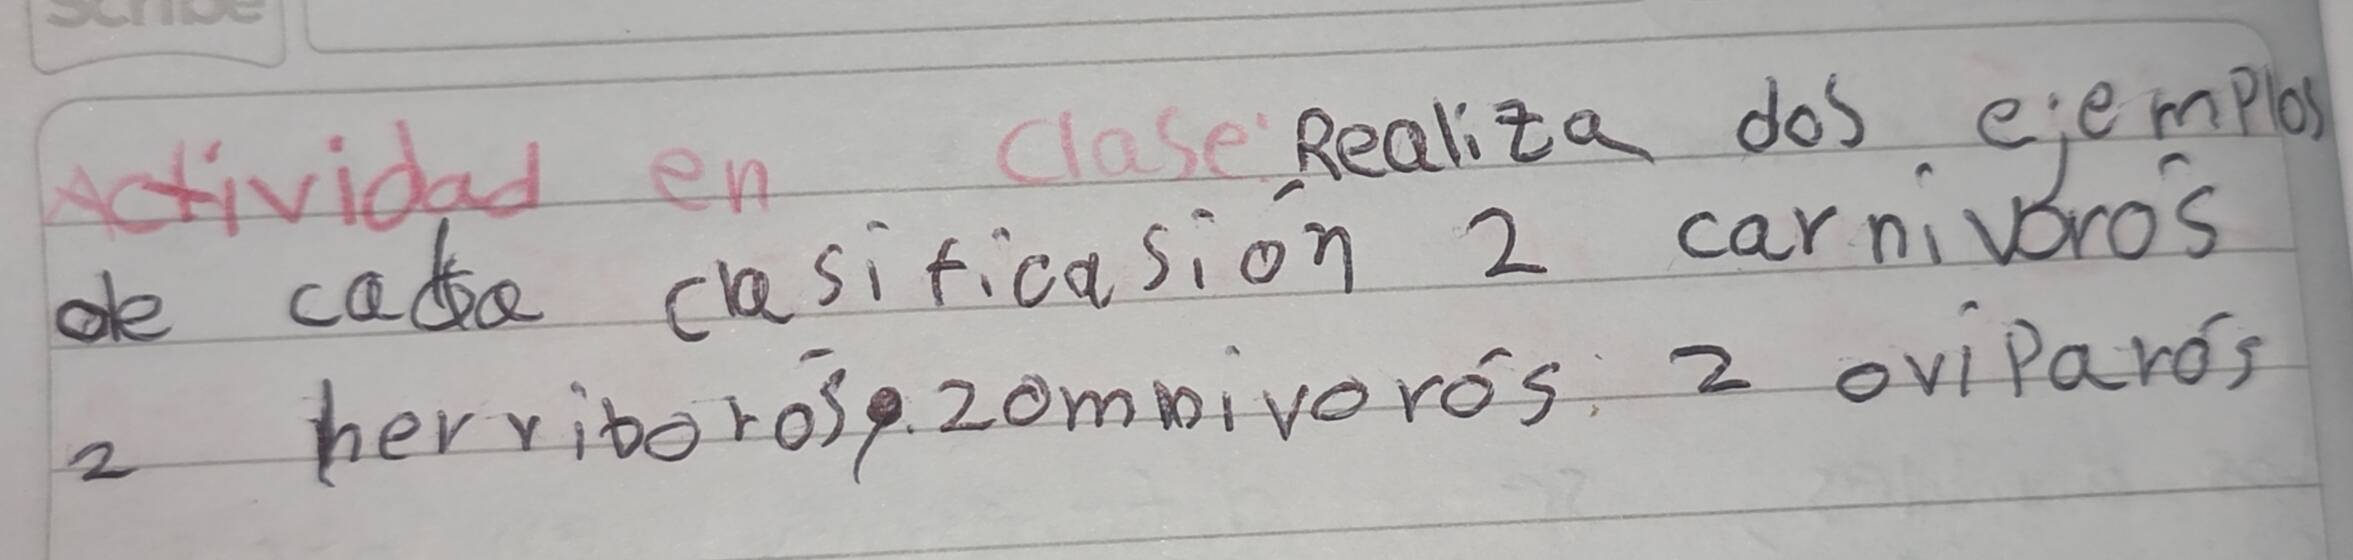 Scribe
Actividad en clase: Realiza dos ejemplos
de cada clasificasión 2 carnivorós
2 herriborós, 2 omnivorós. 2 oviparós